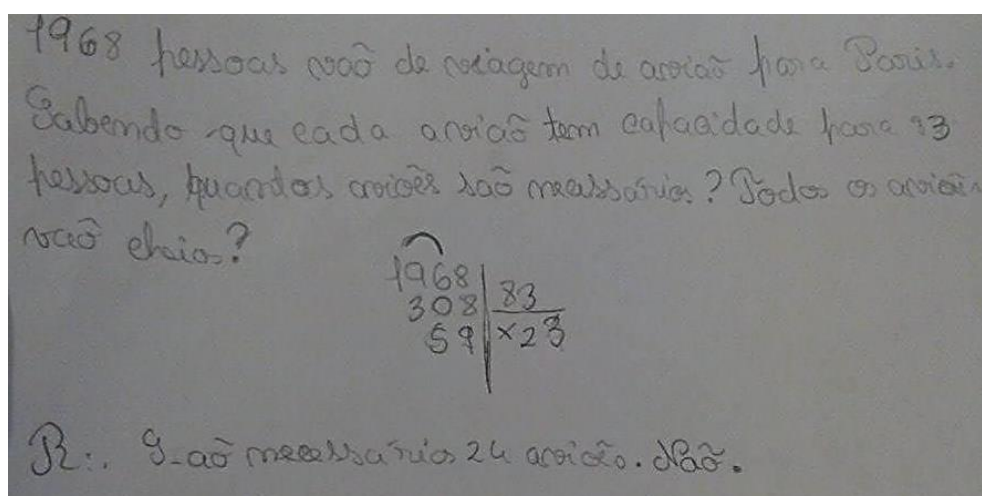 1968 pessoas vaõ de viagem de aviaõ para Paris.
Sabendo que cada aviaõ tem capacidade para 83
pessoas, quantos aviões saõ necessários? Todos os aviões
vaõ cheios?
1968 | 83
308 | x23
59
R:. S-aõ necessários 24 aviões. Naõ.